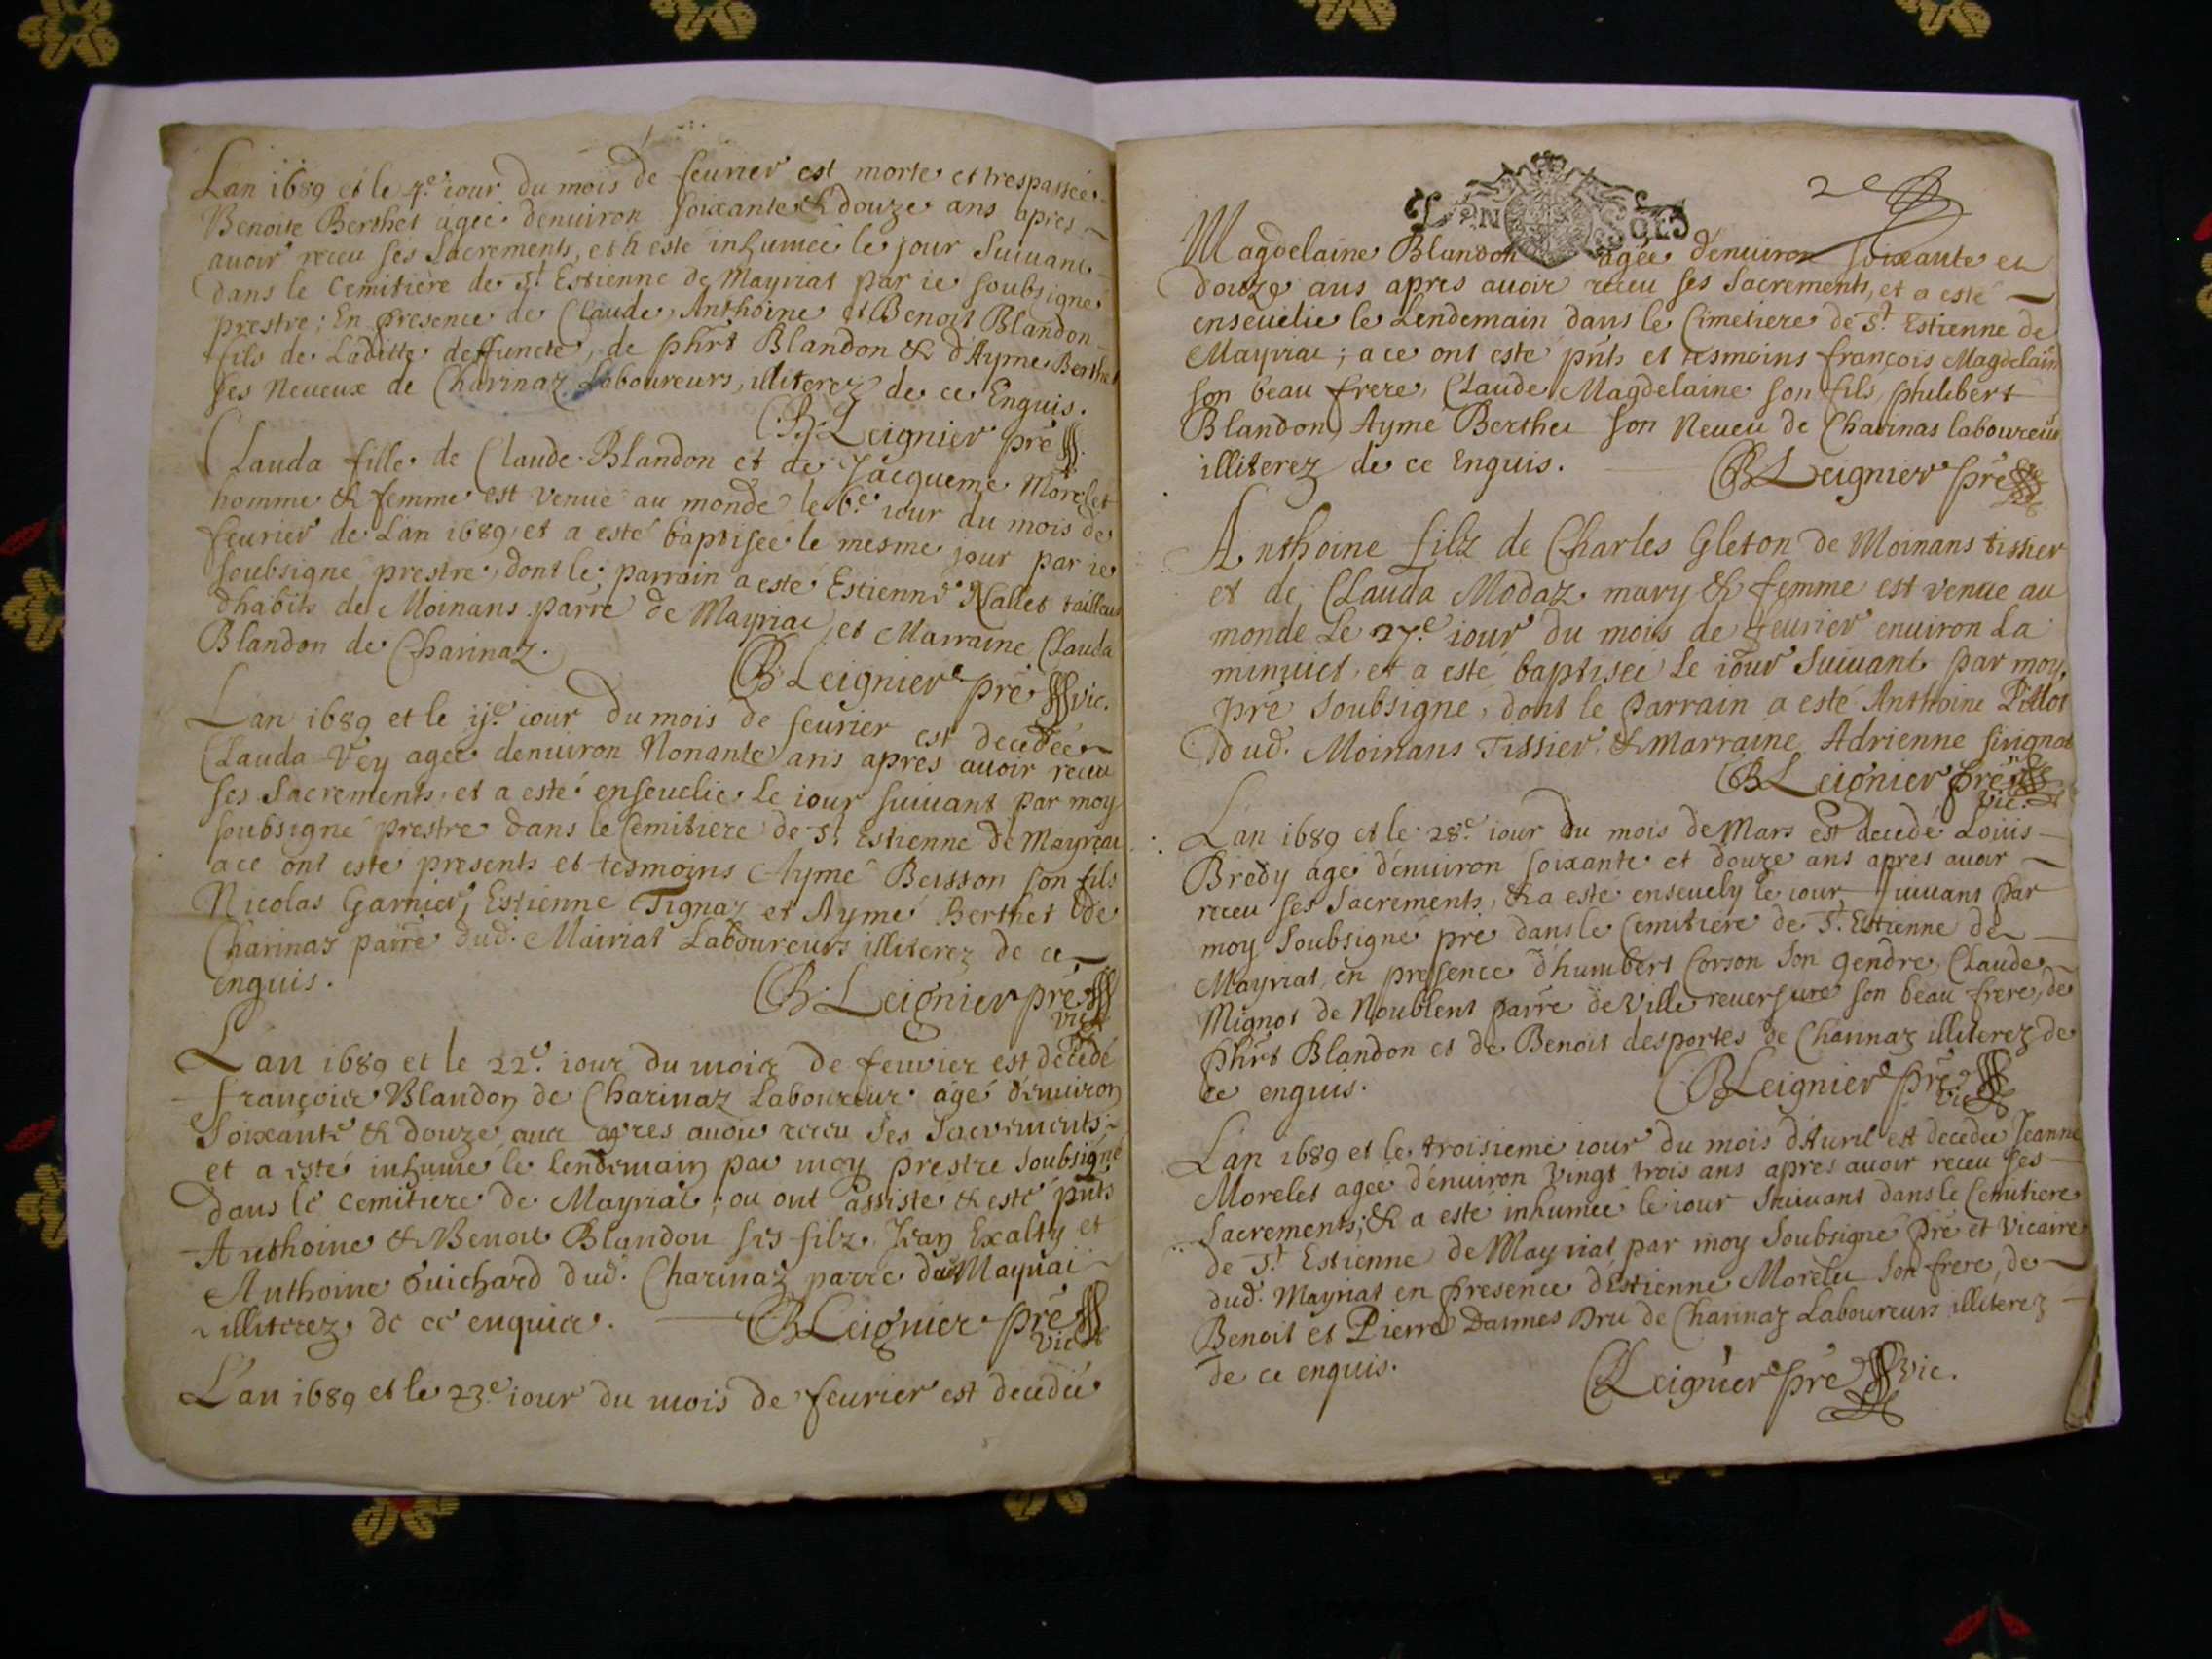 Lan 1689 et le 4.e iour du mois de feurier est morte et trespassée
Benoite Berthet agée denuiron soixante & douze ans apres
auoir receu ses Sacrements, et a esté inhumée le jour Suiuant
dans le Cemitière de St Estienne de Mayriat par ie soubsigné
prestre; En presence de Claude, Anthoine et Benoit Blandon
fils de Laditte deffuncte, de phirt Blandon & d'Ayme Berthet
ses Neueux de Charinaz Laboureurs, illiterez de ce Enguis.
B. Leignier pre
Clauda fille de Claude Blandon et de Jacqueme Morelet
homme & femme est venue au monde le 6.e iour du mois de
feurier de Lan 1689, et a esté baptisée le mesme jour par ie
soubsigné prestre, dont le parrain a esté Estienne Nallet tailleur
dhabits de Moinans parre de Mayriat, et Marraine Clauda
Blandon de Charinaz.
B. Leignier pre vic.
Lan 1689 et le ij.e iour du mois de feurier est decedée
Clauda Vey agée denuiron Nonante ans apres auoir receu
ses Sacrements, et a esté enseuelie Le iour suiuant par moy
soubsigné prestre dans le Cemitiere de St Estienne de Mayriat
a ce ont esté presents et tesmoins Aymé Beisson son fils
Nicolas Garnier, Estienne Tignaz et Aymé Berthet de
Charinaz parre dud. Mairiat Laboureurs illiterez de ce
enguis.
B. Leignier pre
vic
Lan 1689 et le 22.e iour du mois de feurier est decedé
françois Blandon de Charinaz Laboureur agé denuiron
Soixante & douze ans apres auoir receu Ses Sacrements
et a esté inhumé le lendemain par moy prestre soubsigné
dans le Cemitiere de Mayriat; ou ont assisté & esté pnts
Anthoine & Benoit Blandon ses filz Jean Exalty et
Anthoine Guichard dud. Charinaz parre de Mayriat
illiterez de ce enguis.
B Leignier pre
vic
L'an 1689 et le 23.e iour du mois de feurier est decedée
2e
Magdelaine Blandon agée denuiron soixante et
douze ans apres auoir receu ses Sacrements, et a esté
enseuelie le Lendemain dans le Cimetiere de St Estienne de
Mayriat; a ce ont esté pnts et tesmoins françois Magdelain
son beau frere, Claude Magdelaine son fils, philibert
Blandon, Aymé Berthet son Neueu de Charinas laboureurs
illiterez de ce Enguis.
B Leignier pre
Anthoine filz de Charles Gleton de Moinans tissier
et de Clauda Modaz mary & femme est venue au
monde Le 27.e iour du mois de feurier enuiron La
minuict, et a esté baptisée Le iour Suiuant par moy
pre Soubsigné, dont le Parrain a esté Anthoine Pillot
dud. Moinans Tissier & Marraine Adrienne sirignat
B Leignier pre
vic.
Lan 1689 et le 28.e iour du mois de Mars est decedé Loüis
Bredy agé denuiron soixante et douze ans apres auoir
receu ses Sacrements, & a esté enseuely le iour suiuant par
moy Soubsigné pre dans le Cemitiere de St Estienne de
Mayriat, en presence d'humbert Corson Son gendre, Claude
Mignot de Noublent parre de Ville reuersure son beau frere, de
phirt Blandon et de Benoit desportes de Charinaz illiterez de
ce enguis.
B Leignier pre
vic
Lan 1689 et le troisieme iour du mois dAuril est decedée Jeanne
Morelet agée denuiron vingt trois ans apres auoir receu ses
Sacrements; & a esté inhumée le iour Suiuant dans le Cemitiere
de St Estienne de Mayriat par moy Soubsigné pre et vicaire
dud. Mayriat en presence d'Estienne Morelet Son frere, de
Benoit et Pierre Dannes Dru de Charinaz Laboureurs illiterez
de ce enguis.
B Leignier pre vic.